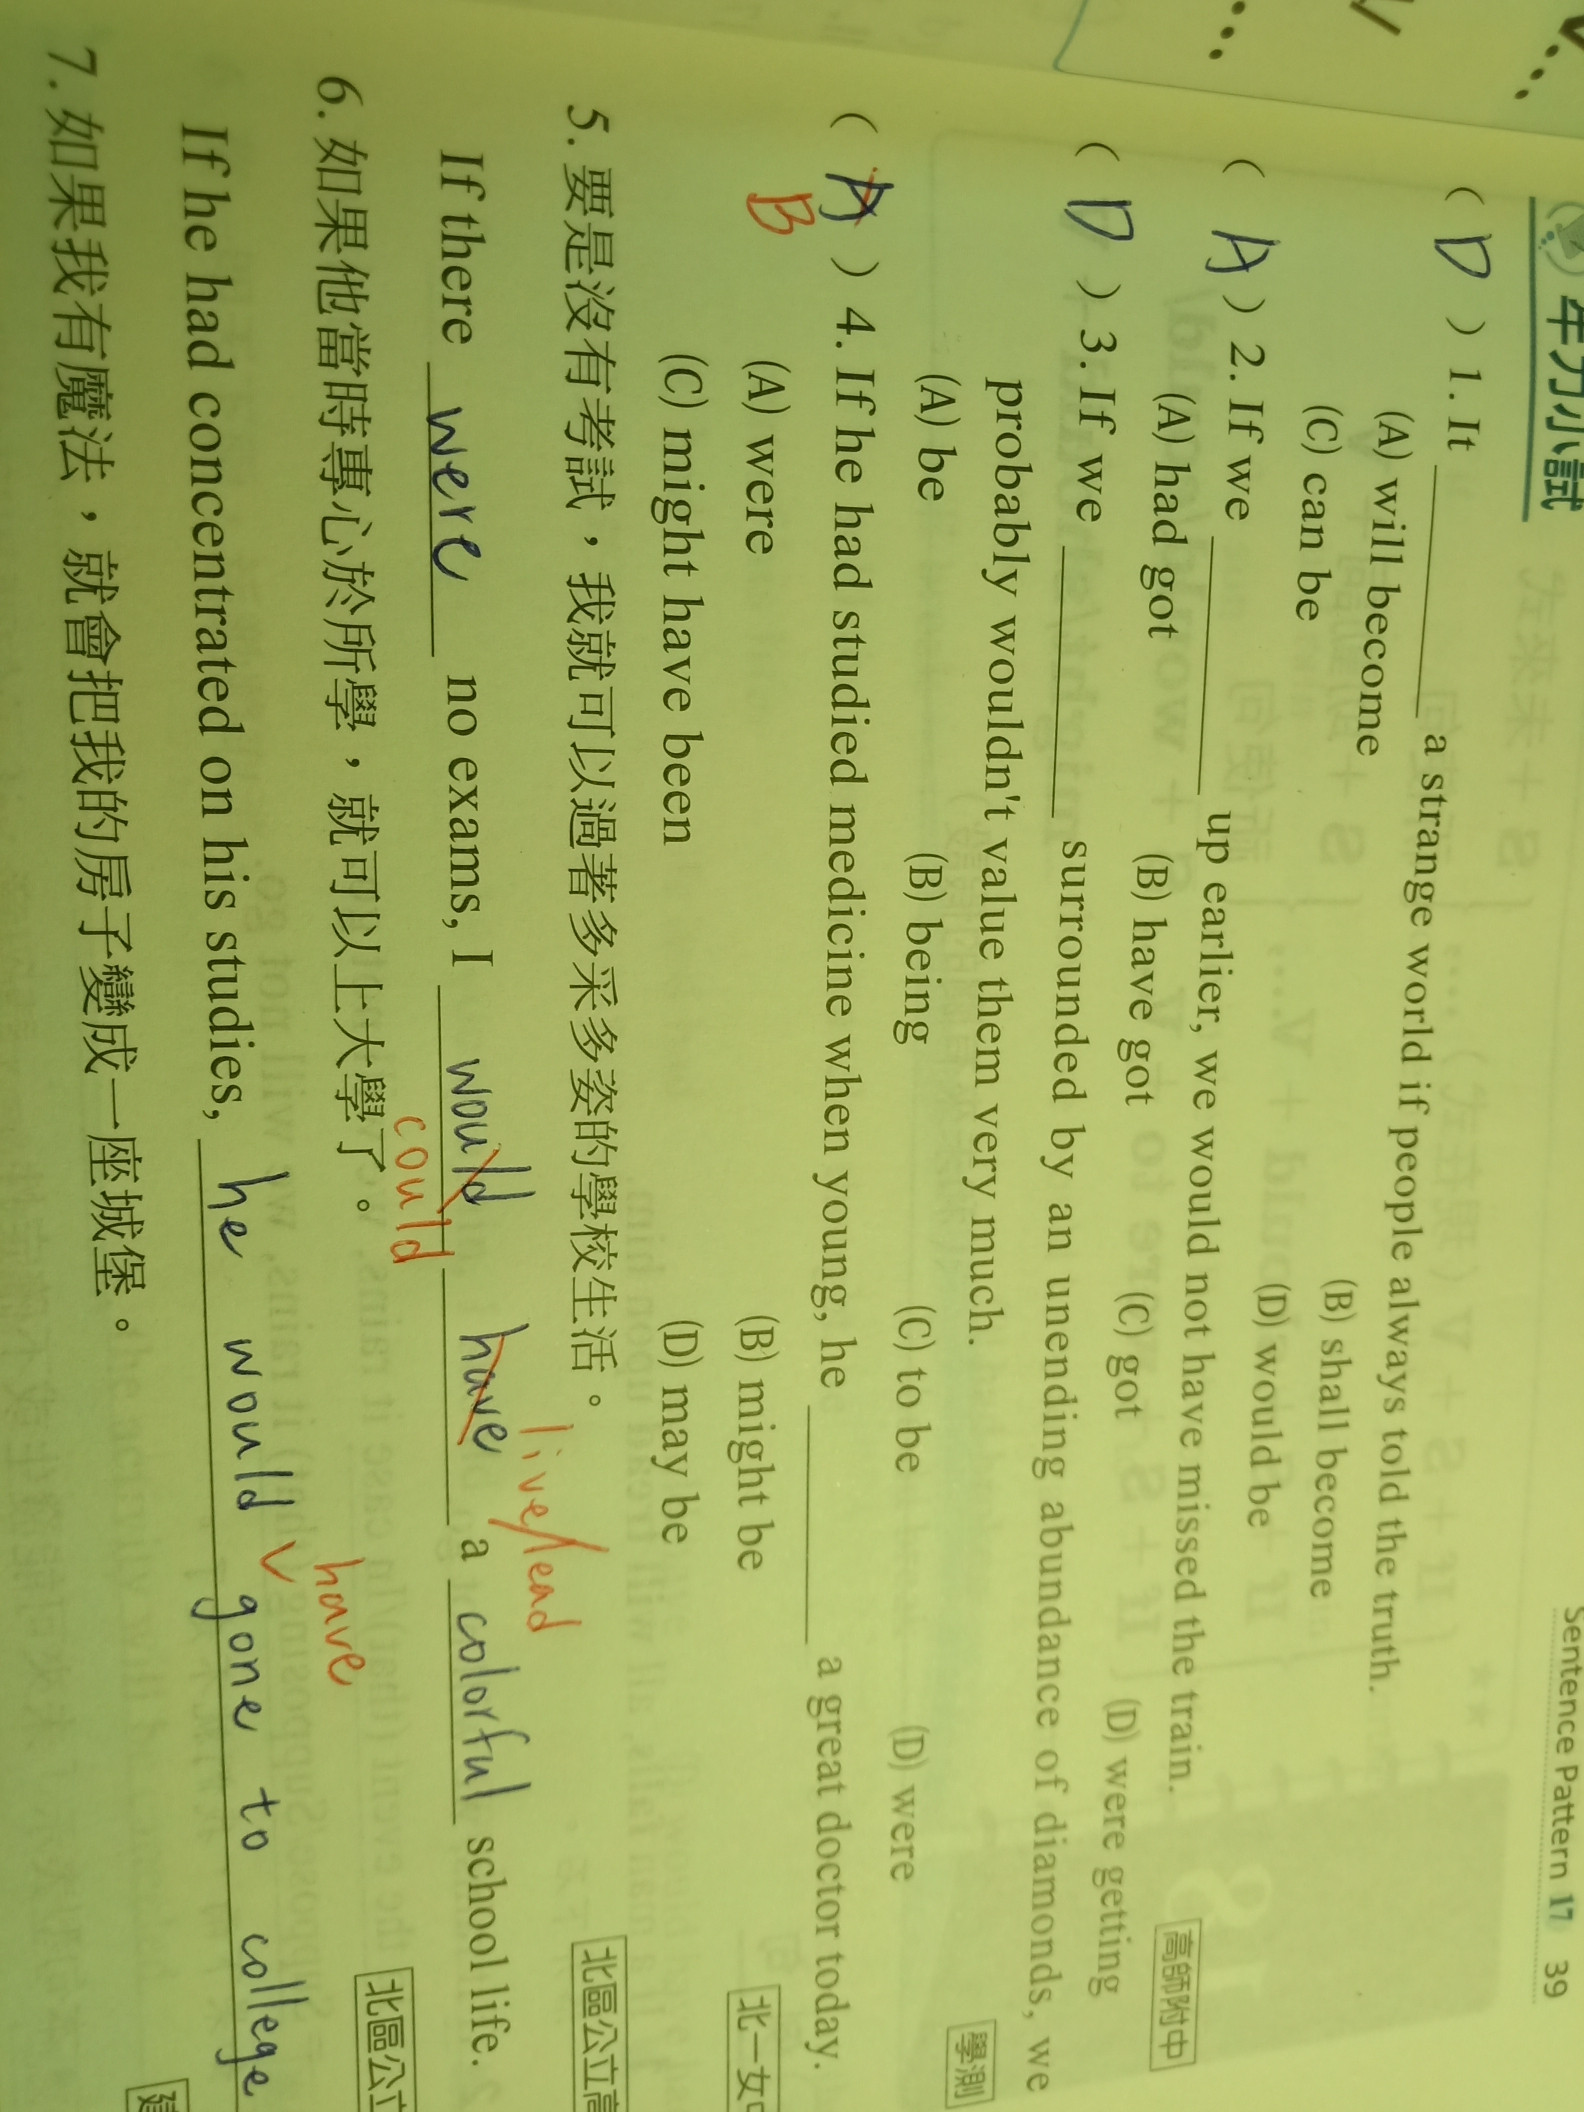 Sentence Pattern 17 39
牛刀小試
( D ) 1. It ________ a strange world if people always told the truth.
(A) will become (B) shall become
(C) can be (D) would be
( A ) 2. If we ________ up earlier, we would not have missed the train. 高師附中
(A) had got (B) have got (C) got (D) were getting
( D ) 3. If we ________ surrounded by an unending abundance of diamonds, we
probably wouldn't value them very much. 學測
(A) be (B) being (C) to be (D) were
( A ) 4. If he had studied medicine when young, he ________ a great doctor today.
B
(A) were (B) might be 北一女
(C) might have been (D) may be
5. 要是沒有考試，我就可以過著多采多姿的學校生活。 北區公立高
live/lead
If there were no exams, I would have a colorful school life.
could
6. 如果他當時專心於所學，就可以上大學了。 北區公立
have
If he had concentrated on his studies, he would ∨ gone to college
7. 如果我有魔法，就會把我的房子變成一座城堡。